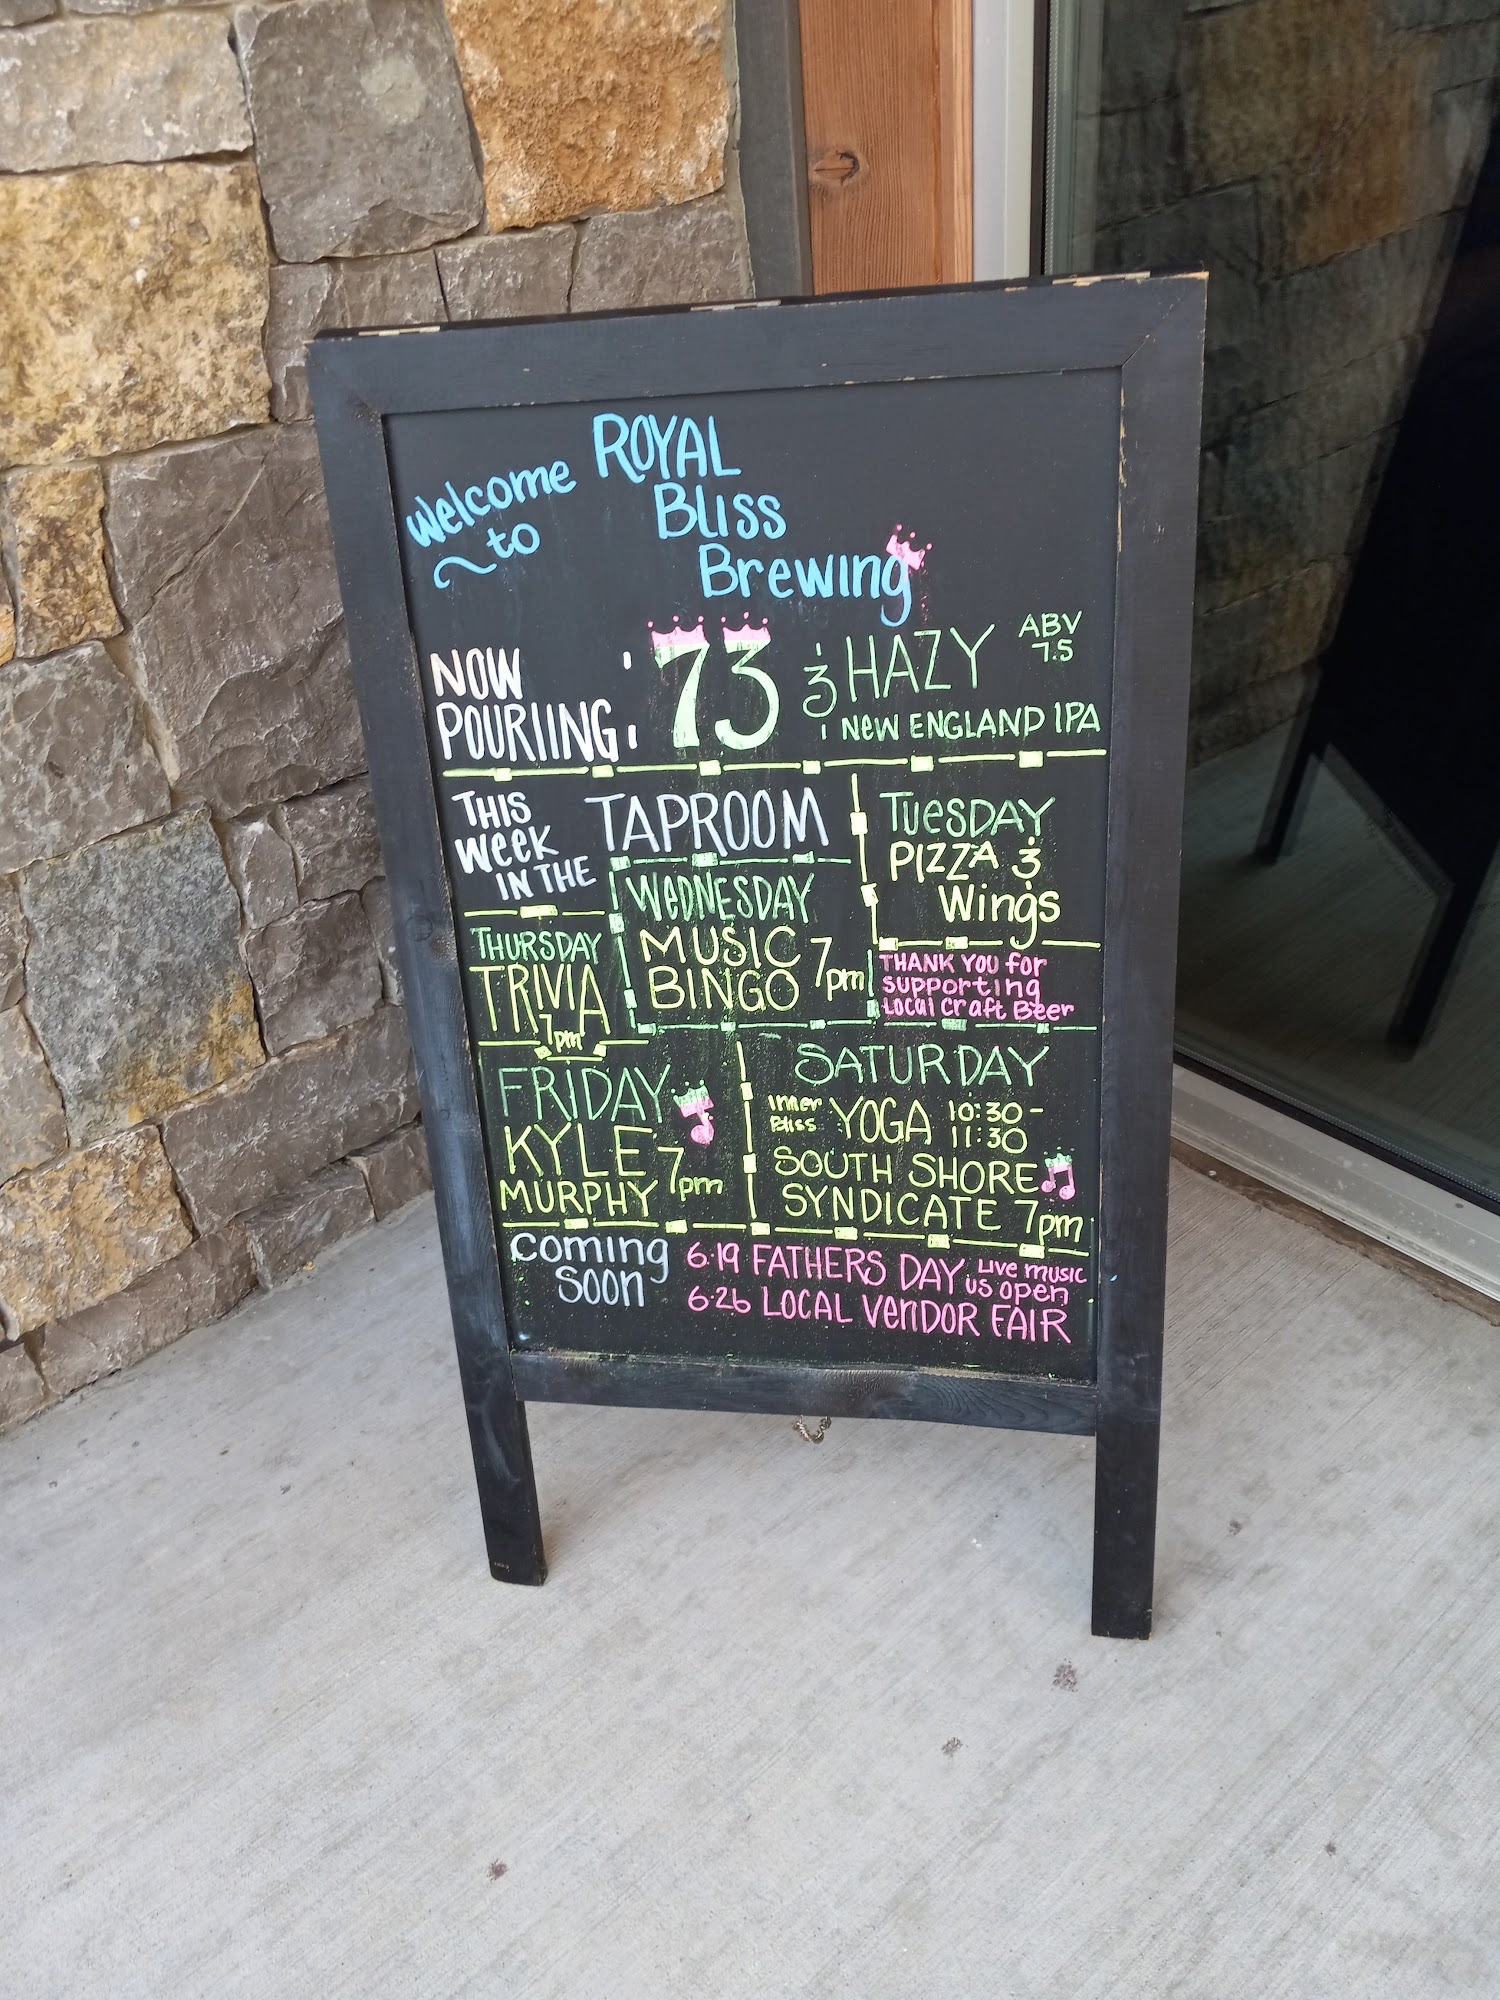 Welcome to
ROYAL
BLISS
Brewing
NOW
POURIING:
73 & HAZY
ABV
7.5
NEW ENGLAND IPA
THIS
WEEK
IN THE
TAPROOM
TUESDAY
PIZZA &
Wings
WEDNESDAY
MUSIC
BINGO 7pm
THANK YOU for
supporting
Local Craft Beer
THURSDAY
TRIVIA
7pm
FRIDAY
KYLE
MURPHY 7pm
SATURDAY
Inner
Bliss YOGA 10:30-
11:30
SOUTH SHORE
SYNDICATE 7pm
Coming
Soon
6.19 FATHERS DAY. LIVE MUSIC
US OPEN
6.26 LOCAL VENDOR FAIR